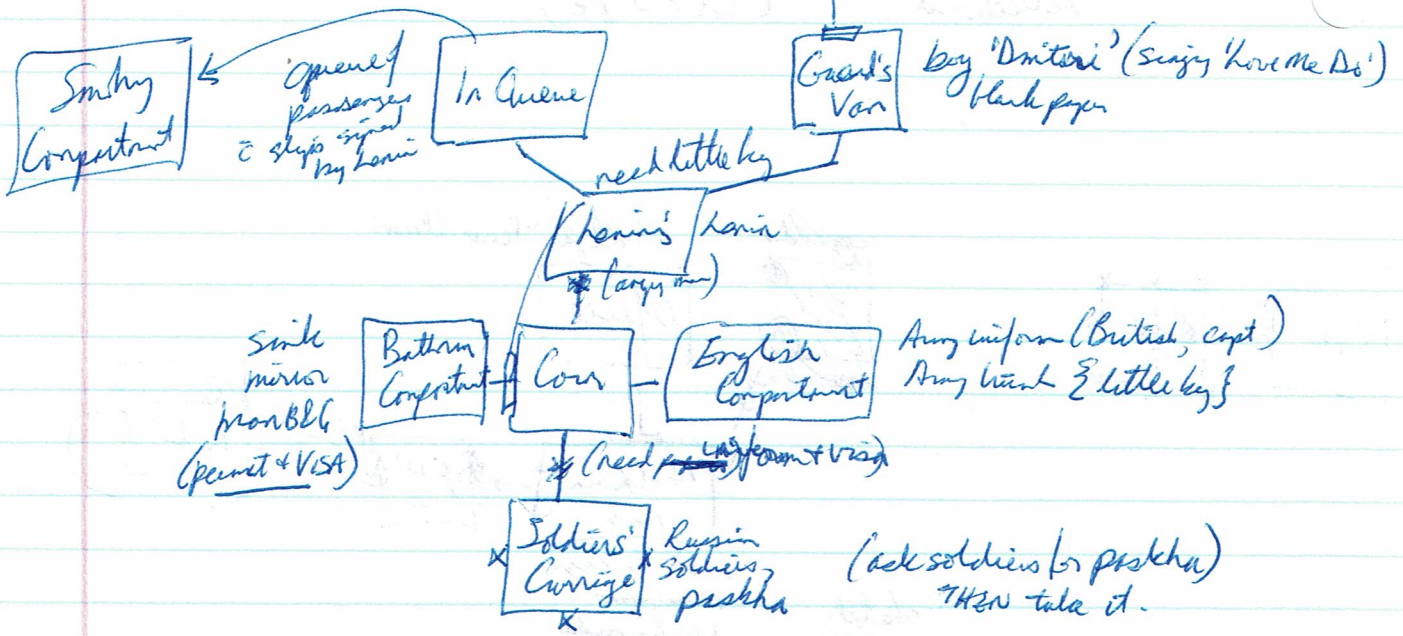 Smoky
Compartment
queue/
passenger
c̄ slips signed
by Lenin
In Queue
Guard's
Van
boy 'Dmitori' (singing 'Love Me Do')
blank paper
need little key
Lenin's
Lenin
(angry man)
sink
mirror
man
(permit + VISA)
Bathroom
Compartment
Corr
English
Compartment
Army uniform (British, capt)
Army trunk {little key}
(need uniform + visa)
Soldiers'
Carriage
Russian
Soldiers,
paskha
(ask soldiers for paskha)
THEN take it.